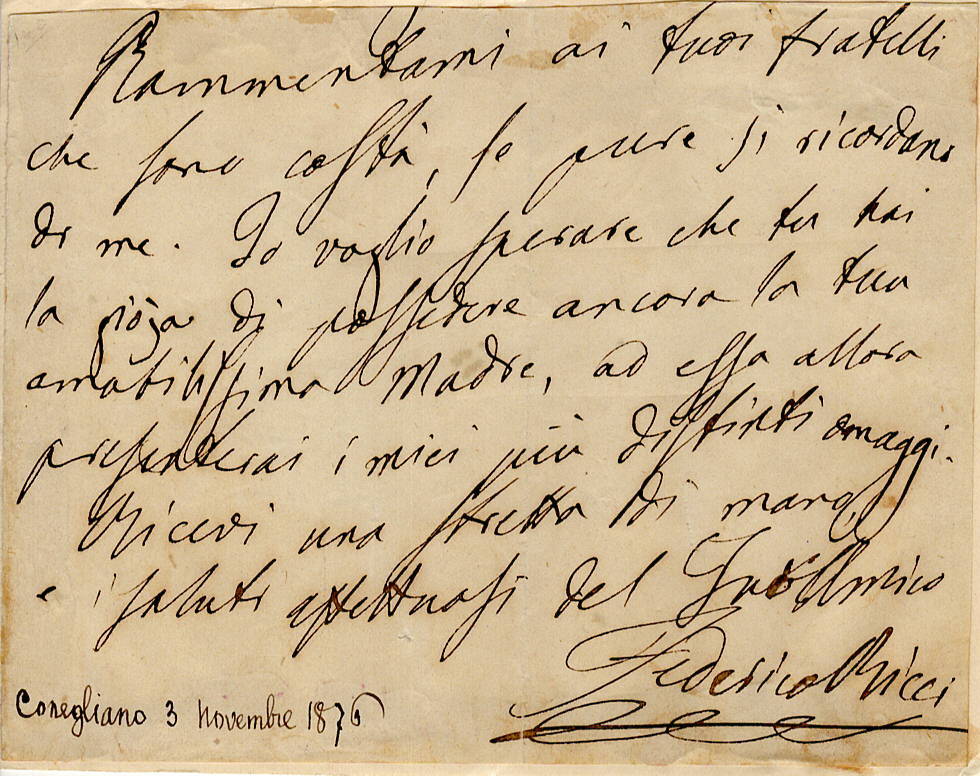 Rammentami ai tuoi fratelli
che sono costà, se pure si ricordano
di me. Io voglio sperare che tu hai
la gioja di possedere ancora la tua
amabilissima Madre, ad essa allora
presenterai i miei più distinti omaggi.
Ricevi una stretta di mano,
e i saluti affettuosi del Tuo Amico
Federico Ricci
Conegliano 3 Novembre 1876